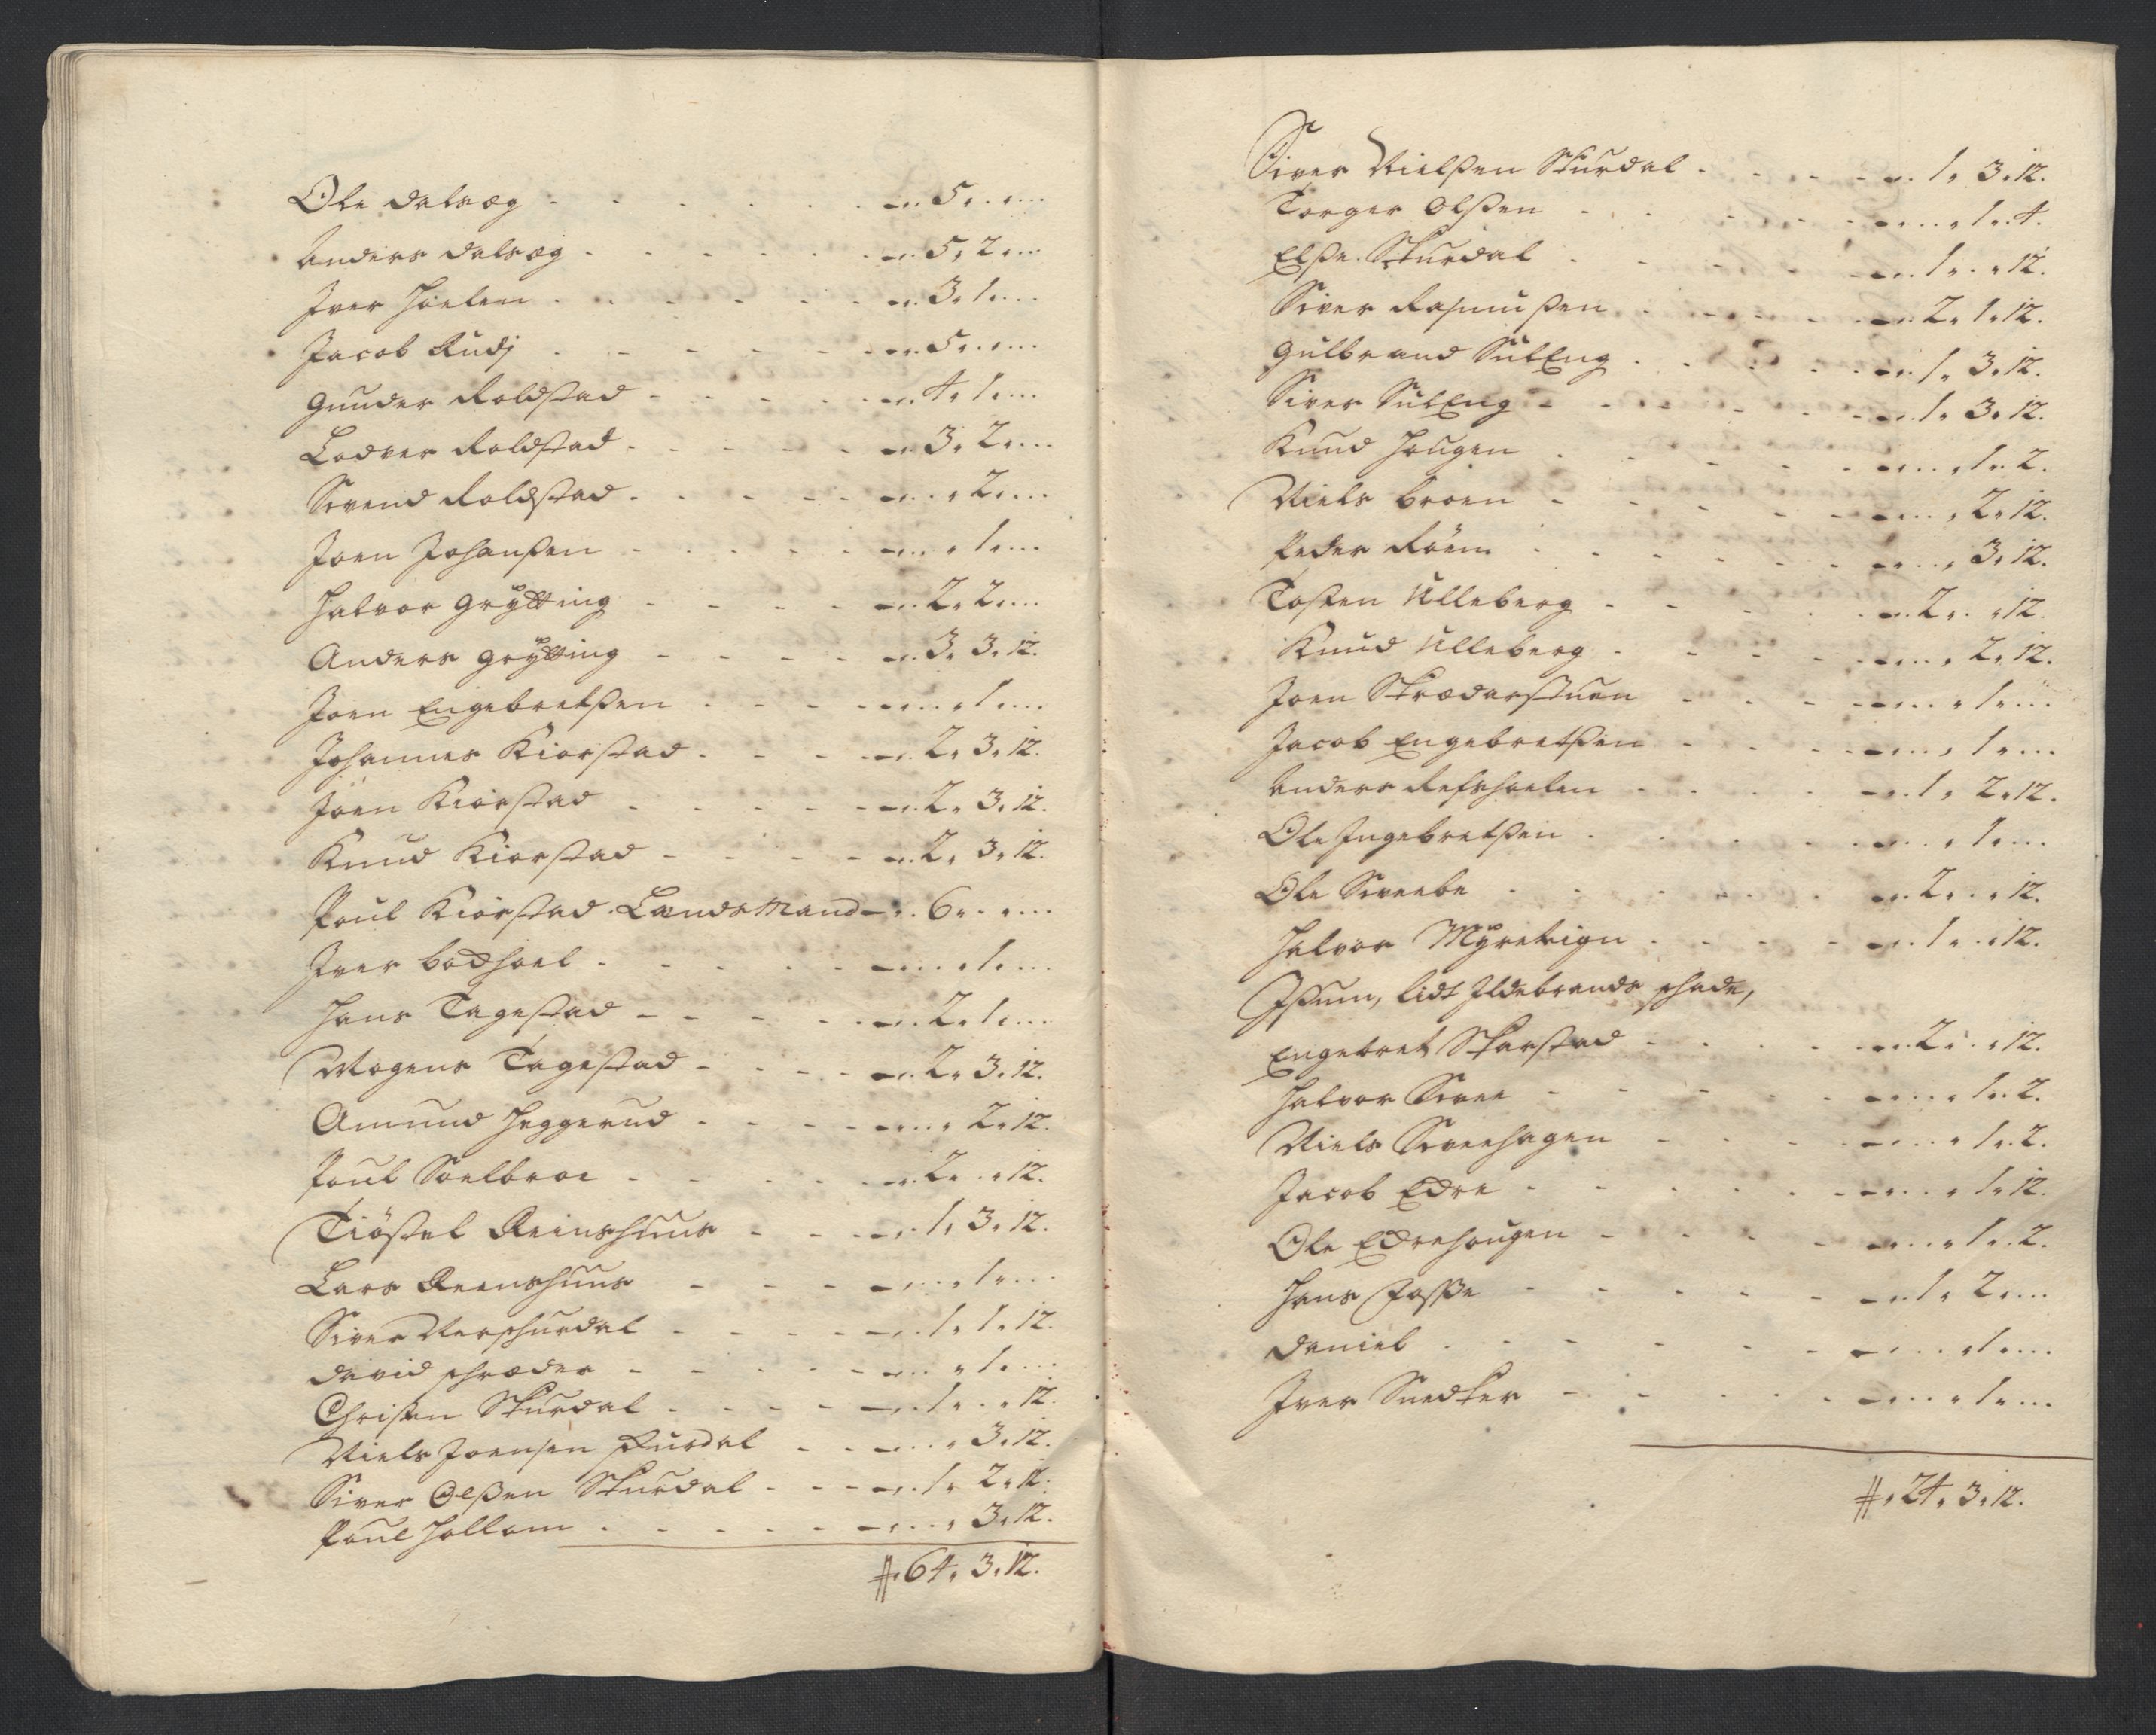 Ole Dalsæg - - - - - - 5 " - " -
Anders Dalsæg - - - - - - 5 " 2 " -
Iver Hoelen - - - - - - 3 " 1 " -
Jacob Rudj - - - - - - 5 " - " -
Gunder Roldstad - - - - - 4 " 1 " -
Lodver Roldstad - - - - - 3 " 2 " -
Svend Roldstad - - - - - " 2 " -
Joen Johanßen - - - - - " 1 " -
Halvor Grÿtting - - - - 2 " 2 " -
Anders Grÿtting - - - - 3 " 3 " 12.
Joen Engebretßen - - - - " 1 " -
Johannes Kiorstad - - - - 2 " 3 " 12.
Joen Kiørstad - - - - - 2 " 3 " 12.
Knud Kiorstad - - - - - 2 " 3 " 12.
Poul Kiørstad. LandsMand - 6 " - " -
Iver Bodhoel - - - - - " 1 " -
Hans Tagestad - - - - - 2 " 1 " -
Mogens Tagestad - - - - 2 " 3 " 12.
Amund Heggerud - - - - " 2 " 12.
Poul Soelbroe - - - - - 2 " - " 12.
Tiøstel Reinshuus - - - 1 " 3 " 12.
Lars Reenshuus - - - - " 1 " -
Siver Nerschurdal - - - - 1 " 1 " 12.
David schræder - - - - - " 1 " -
Christen Skurdal - - - - 1 " - " 12.
Niels Joensen skurdal - - - " 3 " 12.
Siver Olßen Skurdal - - - 1 " 2 " 12.
Poul Hollom - - - - - " 3 " 12.
# " 64 " 3 " 12.
Siver Nielßen Skurdal - - - - 1 " 3 " 12.
Torger Olßen - - - - - " 1 " 4.
Elße Skurdal - - - - - 1 " - " 12.
Siver Rasmußen - - - - - 2 " 1 " 12.
Gulbrand SulEng - - - - - 1 " 3 " 12.
Siver SulEng - - - - - 1 " 3 " 12.
Knud Hougen - - - - - " 1 " 2.
Niels Broen - - - - - " 2 " 12.
Peder Röem - - - - - " 3 " 12.
Tosten Ulleberg - - - - - 2 " - " 12.
Knud Ulleberg - - - - - " 2 " 12.
Joen Skrædarstuen - - - - " 1 " -
Jacob Engebretßen - - - - " 1 " -
Anders Refshoelen - - - - 1 " 2 " 12.
Ole Ingebretßen - - - - - " 1 " -
Ole Sveebe - - - - - 2 " - " 12.
Halvor Mÿre - - - - 1 " - " 12.
Issum, lidt Ildebrands schade,
Engebret Skarstad - - - - 2 " - " 12.
Halvor Svee - - - - - " 1 " 2.
Niels Sveehagen - - - - " 1 " 2.
Jacob Edre - - - - - " 1 " 12.
Ole Edrehougen - - - - " 1 " 2.
Hans Foße - - - - - 1 " 2 " -
Daniel - - - - - " 1 " -
Iver Snedker - - - - - " 1 " -
# " 24 " 3 " 12.